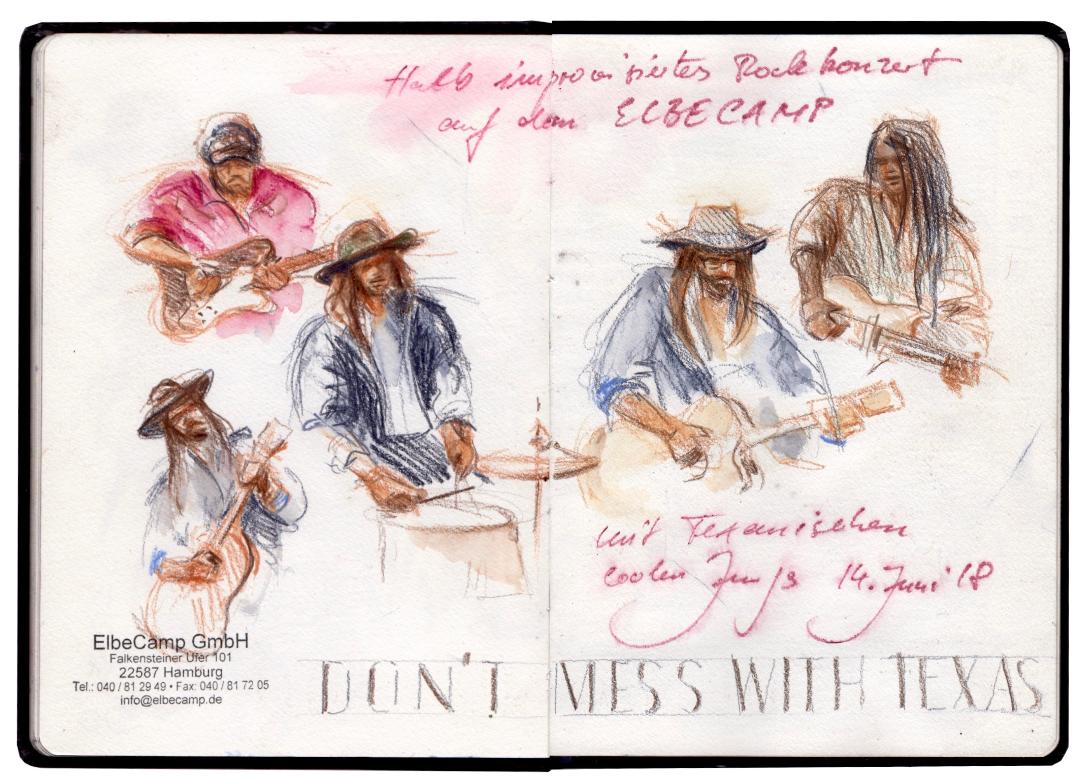 Halb improvisiertes Rockkonzert
auf dem ELBECAMP
mit Texanischen
coolen Jungs 14. Juni 18
ElbeCamp GmbH
Falkensteiner Ufer 101
22587 Hamburg
Tel.: 040 / 81 29 49 • Fax: 040 / 81 72 05
info@elbecamp.de
DON'T MESS WITH TEXAS